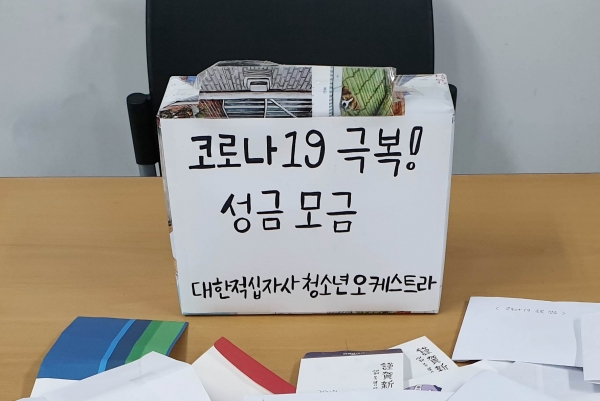 코로나19 극복!
성금 모금
대한적십자사 청소년오케스트라